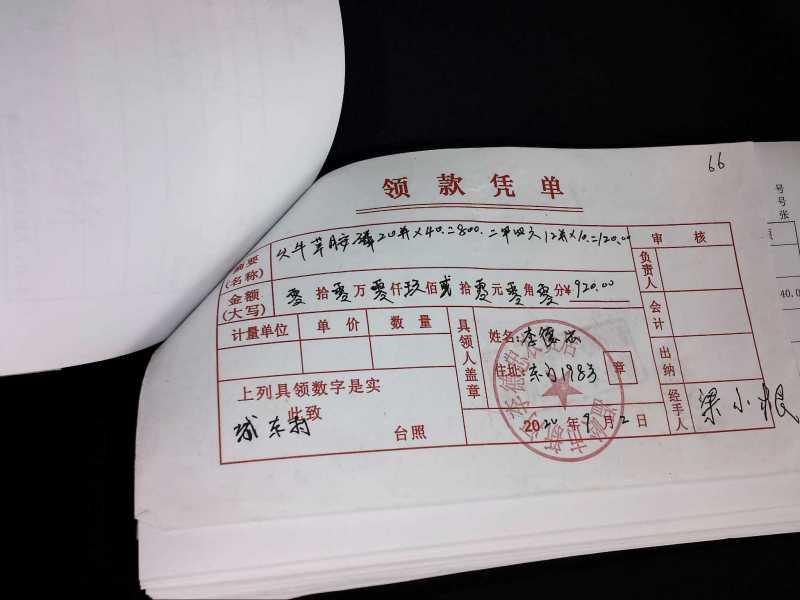 66
领款凭单
摘要
(名称)
草胺磷20斤×40.=800. 二甲四六12斤×10.=120.00
金额
(大写)
零拾零万零仟玖佰贰拾零元零角零分¥920.00
计量单位 单价 数量
上列具领数字是实
此致
城东村 台照
具领人盖章
姓名:李德
住址:
章
2020年9月2日
审核
负责人
会计
出纳
经手人
梁小根
号
号
张
40.0